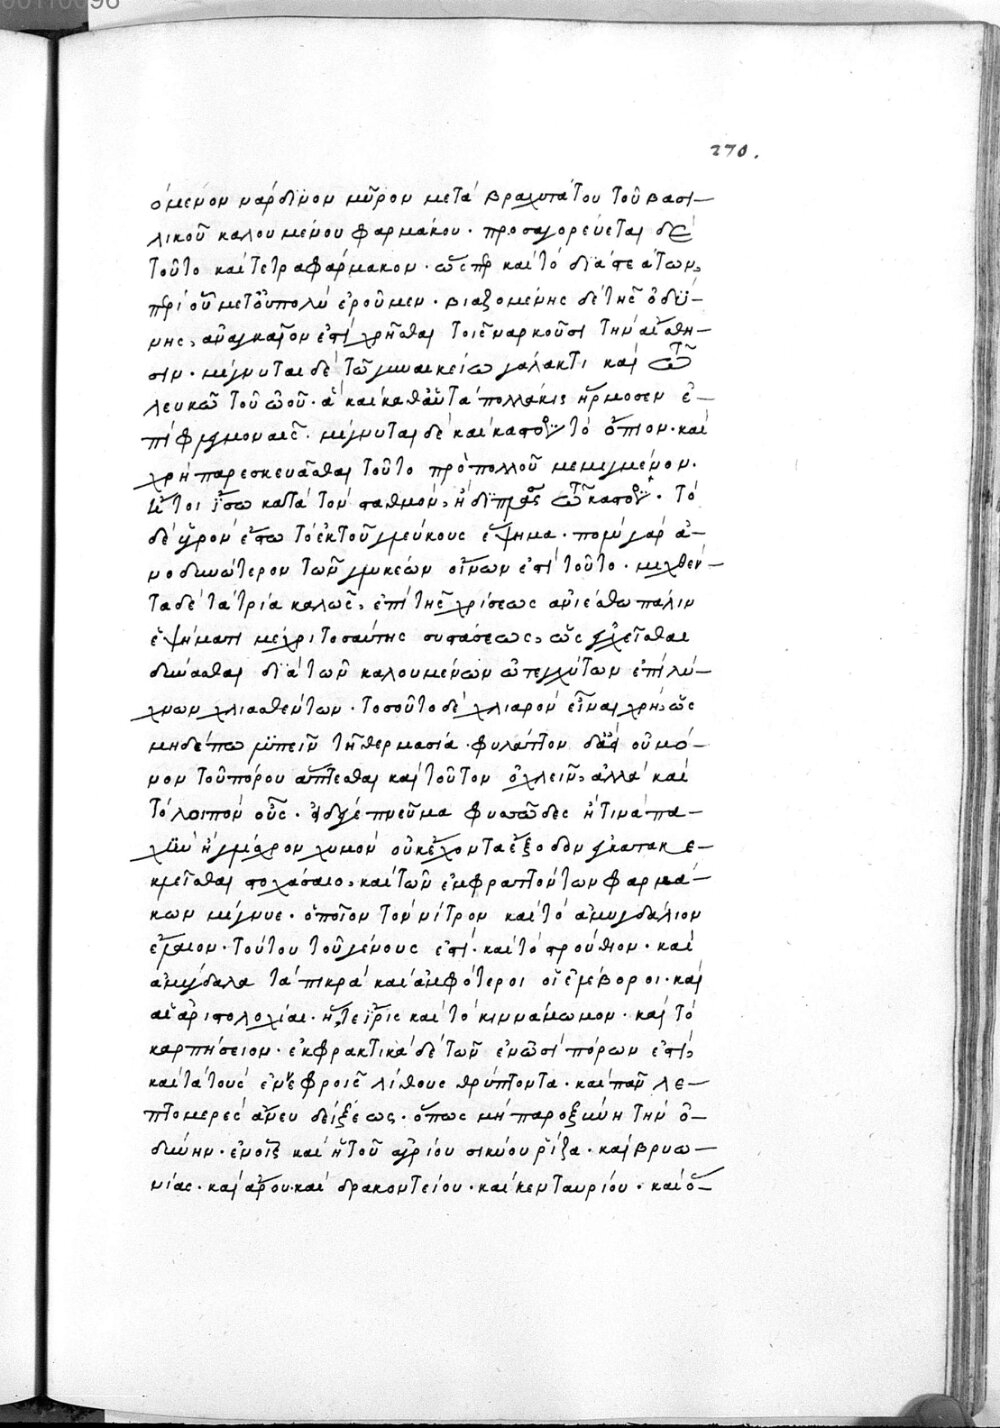 270.
όμενον νάρδϊνον μῦρον μετὰ βραχυτάτου τοῦ βασι-
λικοῦ καλουμένου φαρμάκου. προσαγορεύεται δὲ
τοῦτο καὶ τετραφάρμακον. ὥσπερ καὶ τὸ διὰ στεάτων,
περὶ οὗ μετ' οὐπολὺ ἐροῦμεν. βιαζομένης δὲ τῆς ὀδύ-
νης, ἀναγκαῖον ἐπιχρῆσθαι τοῖς ναρκοῦσι τὴν αἴσθη-
σιν. μίγνυται δὲ τῷ γυναικείῳ γάλακτι καὶ τῷ
λευκῷ τοῦ ὠοῦ. ἃ καὶ καθ' αὑτὰ πολλάκις ἥρμοσεν ἐ-
πὶ φλεγμοναῖς. μίγνυται δὲ καὶ καστορίῳ τὸ ὄπιον. καὶ
χρὴ παρεσκευᾶσθαι τοῦτο πρὸ πολλοῦ μεμιγμένον.
ἤτοι ἴσῳ κατὰ τὸν σταθμόν, ἢ διπλάσιον τῷ καστορίῳ. τὸ
δὲ ὑγρὸν ἔστω τὸ ἐκ τοῦ γλεύκους ἕψημα. πολὺ γὰρ ἀ-
νοδυνώτερον τῶν γλυκέων οἴνων ἐστὶ τοῦτο. μιχθέν-
τα δὲ τὰ τρία καλῶς, ἐπὶ τῆς χρίσεως ἀνιέσθω πάλιν
ἑψήματι μέχρι τοσαύτης συστάσεως, ὡς ἐγχεῖσθαι
δύνασθαι διὰ τῶν καλουμένων ὠτεγχύτων ἐπὶ λύ-
χνων χλιασθέντων. τοσοῦτο δὲ χλιαρὸν εἶναι χρή, ὡς
μηδέπω λυπεῖν τῇ θερμασίᾳ. φυλάττου δὲ οὐ μό-
νον τοῦ πόρου ἅπτεσθαι καὶ τοῦτον ὀχλεῖν, ἀλλὰ καὶ
τὸ λοιπὸν οὖς. εἰ δέ γε πνεῦμα φυσῶδες ἤ τινα πα-
χὺν ἢ γλίσχρον χυμὸν οὐκ ἔχοντα ἔξοδον ἐγκατακε-
κλεῖσθαι στοχάσαιο, καὶ τῶν ἐκφραττόντων φαρμά-
κων μίγνυε. ὁποῖον τὸν νίτρον καὶ τὸ ἀμυγδάλιον
ἔλαιον. τούτου τοῦ γένους ἐστὶ καὶ τὸ στρούθιον. καὶ
ἀμύγδαλα τὰ πικρὰ καὶ ἀμφότεροι οἱ ἐλλέβοροι. καὶ
αἱ ἀριστολοχίαι. ἥ,τε ἶρις καὶ τὸ κιννάμωμον. καὶ τὸ
καρπήσειον. ἐκφρακτικὰ δὲ τῶν ἐν ὠσὶ πόρων ἐστί,
καὶ τὰ τοὺς ἐν νεφροῖς λίθους θρύπτοντα. καὶ πᾶν λε-
πτομερὲς ἄνευ δείξεως. ὅπως μὴ παροξύνῃ τὴν ὀ-
δύνην. ἐν οἷς καὶ ἡ τοῦ ἀγρίου σικύου ῥίζα. καὶ βρυω-
νίας. καὶ ἄρου. καὶ δρακοντείου. καὶ κενταυρίου. καὶ ὅ-